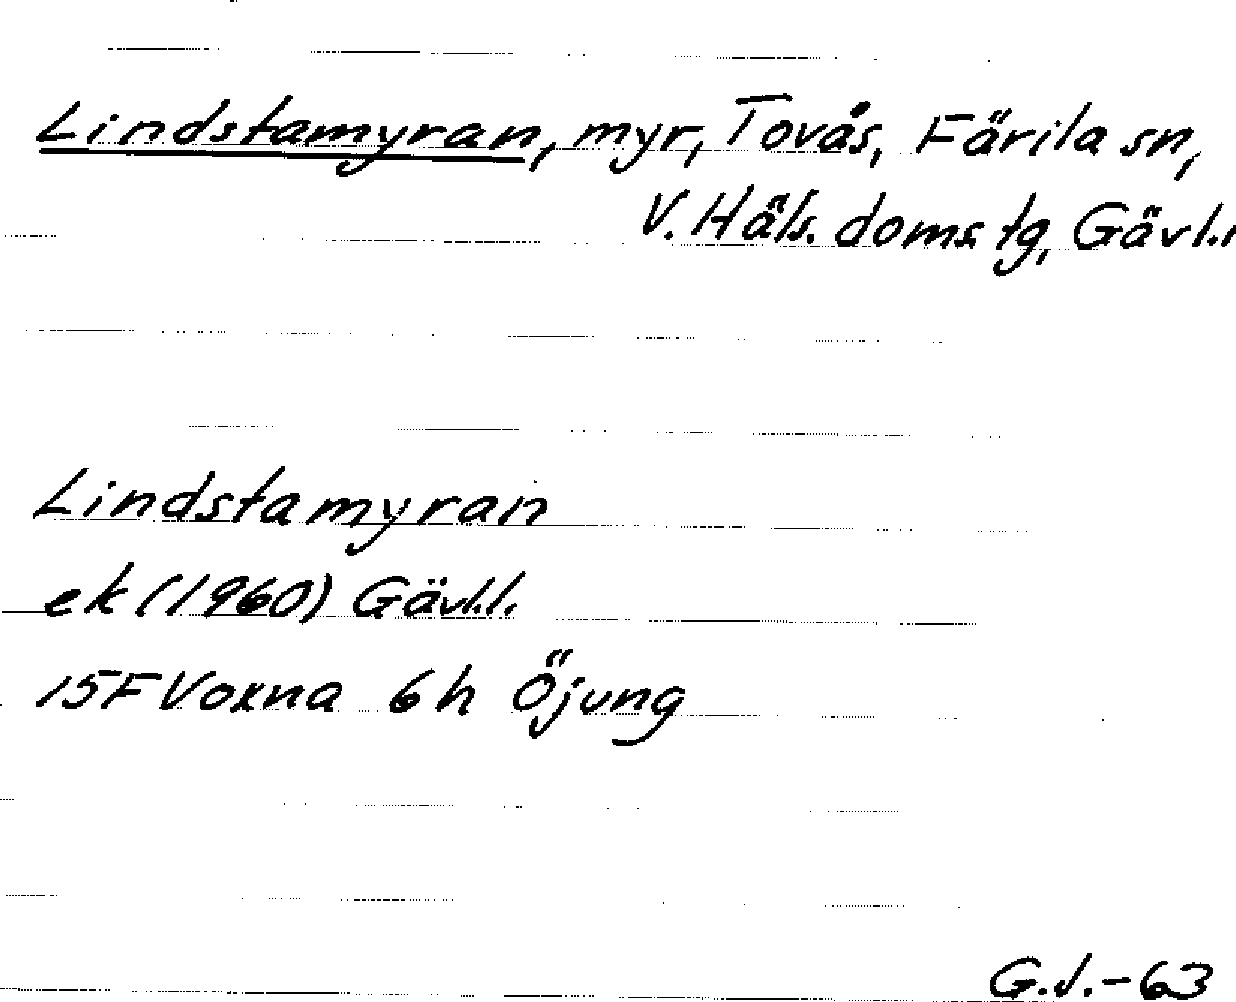 Lindstamyran, myr, Tovås, Färila sn,
V. Häls. doms. tg, Gävl.l
Lindstamyran
ek (1960) Gävl.l.
15F Voxna 6h Öjung
G.J.-63